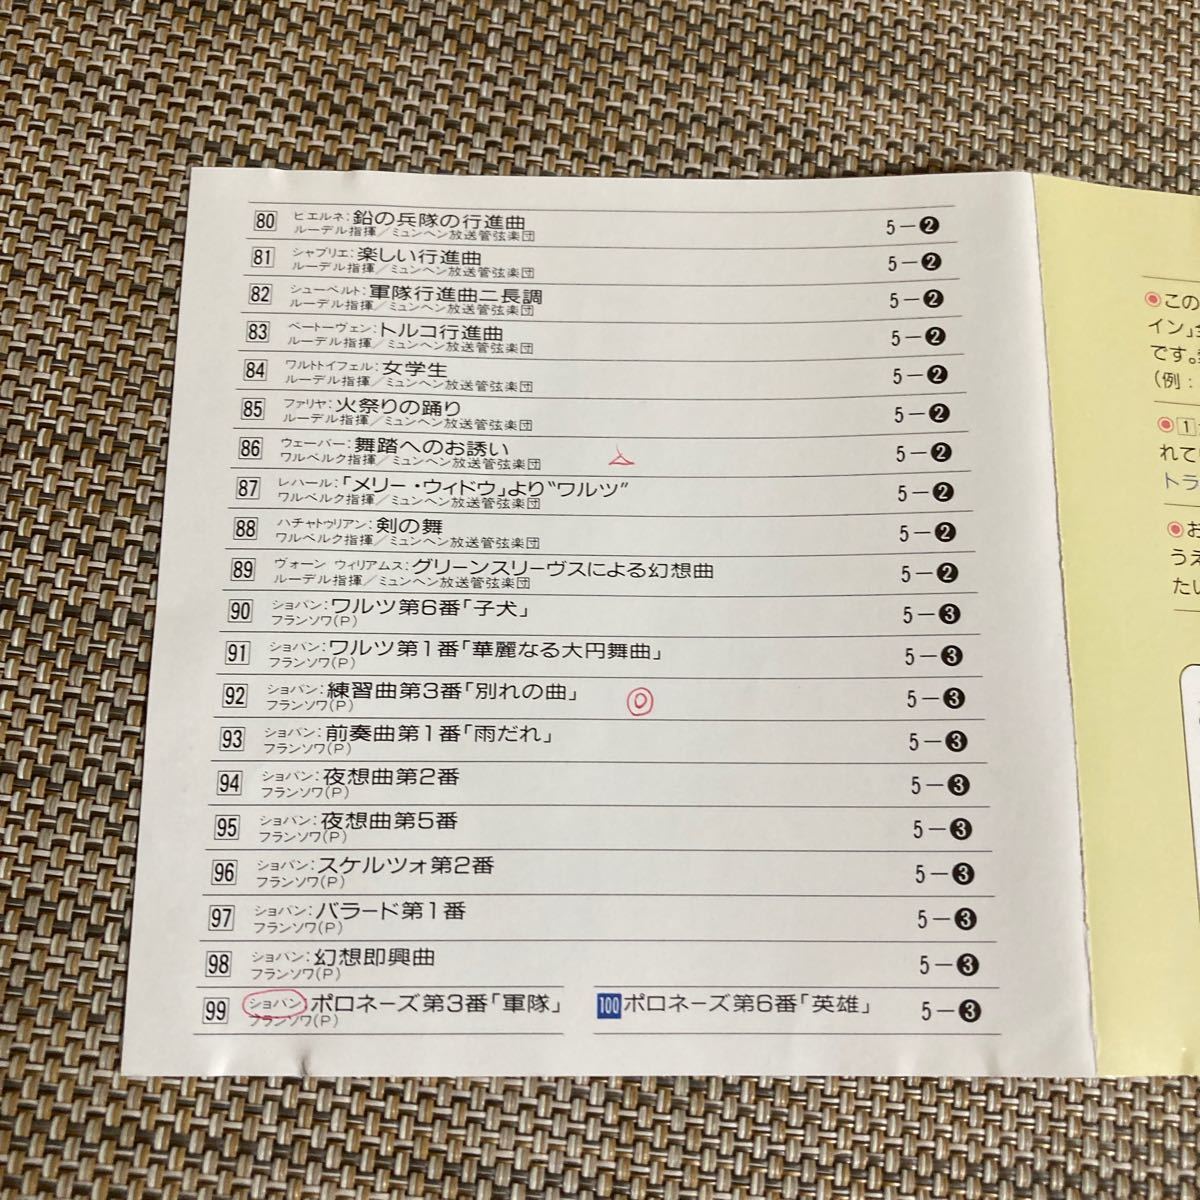 80 ピエルネ:鉛の兵隊の行進曲 5-❷
ルーデル指揮/ミュンヘン放送管弦楽団
81 シャブリエ:楽しい行進曲 5-❷
ルーデル指揮/ミュンヘン放送管弦楽団
82 シューベルト:軍隊行進曲ニ長調 5-❷
ルーデル指揮/ミュンヘン放送管弦楽団
83 ベートーヴェン:トルコ行進曲 5-❷
ルーデル指揮/ミュンヘン放送管弦楽団
84 ワルトトイフェル:女学生 5-❷
ルーデル指揮/ミュンヘン放送管弦楽団
85 ファリャ:火祭りの踊り 5-❷
ルーデル指揮/ミュンヘン放送管弦楽団
86 ウェーバー:舞踏へのお誘い 5-❷
ワルベルク指揮/ミュンヘン放送管弦楽団
87 レハール:「メリー・ウィドウ」より“ワルツ” 5-❷
ワルベルク指揮/ミュンヘン放送管弦楽団
88 ハチャトゥリアン:剣の舞 5-❷
ワルベルク指揮/ミュンヘン放送管弦楽団
89 ヴォーン ウィリアムス:グリーンスリーヴスによる幻想曲 5-❷
ルーデル指揮/ミュンヘン放送管弦楽団
90 ショパン:ワルツ第6番「子犬」 5-❸
フランソワ(P)
91 ショパン:ワルツ第1番「華麗なる大円舞曲」 5-❸
フランソワ(P)
92 ショパン:練習曲第3番「別れの曲」 5-❸
フランソワ(P)
93 ショパン:前奏曲第1番「雨だれ」 5-❸
フランソワ(P)
94 ショパン:夜想曲第2番 5-❸
フランソワ(P)
95 ショパン:夜想曲第5番 5-❸
フランソワ(P)
96 ショパン:スケルツォ第2番 5-❸
フランソワ(P)
97 ショパン:バラード第1番 5-❸
フランソワ(P)
98 ショパン:幻想即興曲 5-❸
フランソワ(P)
99 ショパン:ポロネーズ第3番「軍隊」 100 ポロネーズ第6番「英雄」 5-❸
フランソワ(P)
●この
イン」
です。
(例:
●1
れて
トラ
●お
うえ
たい